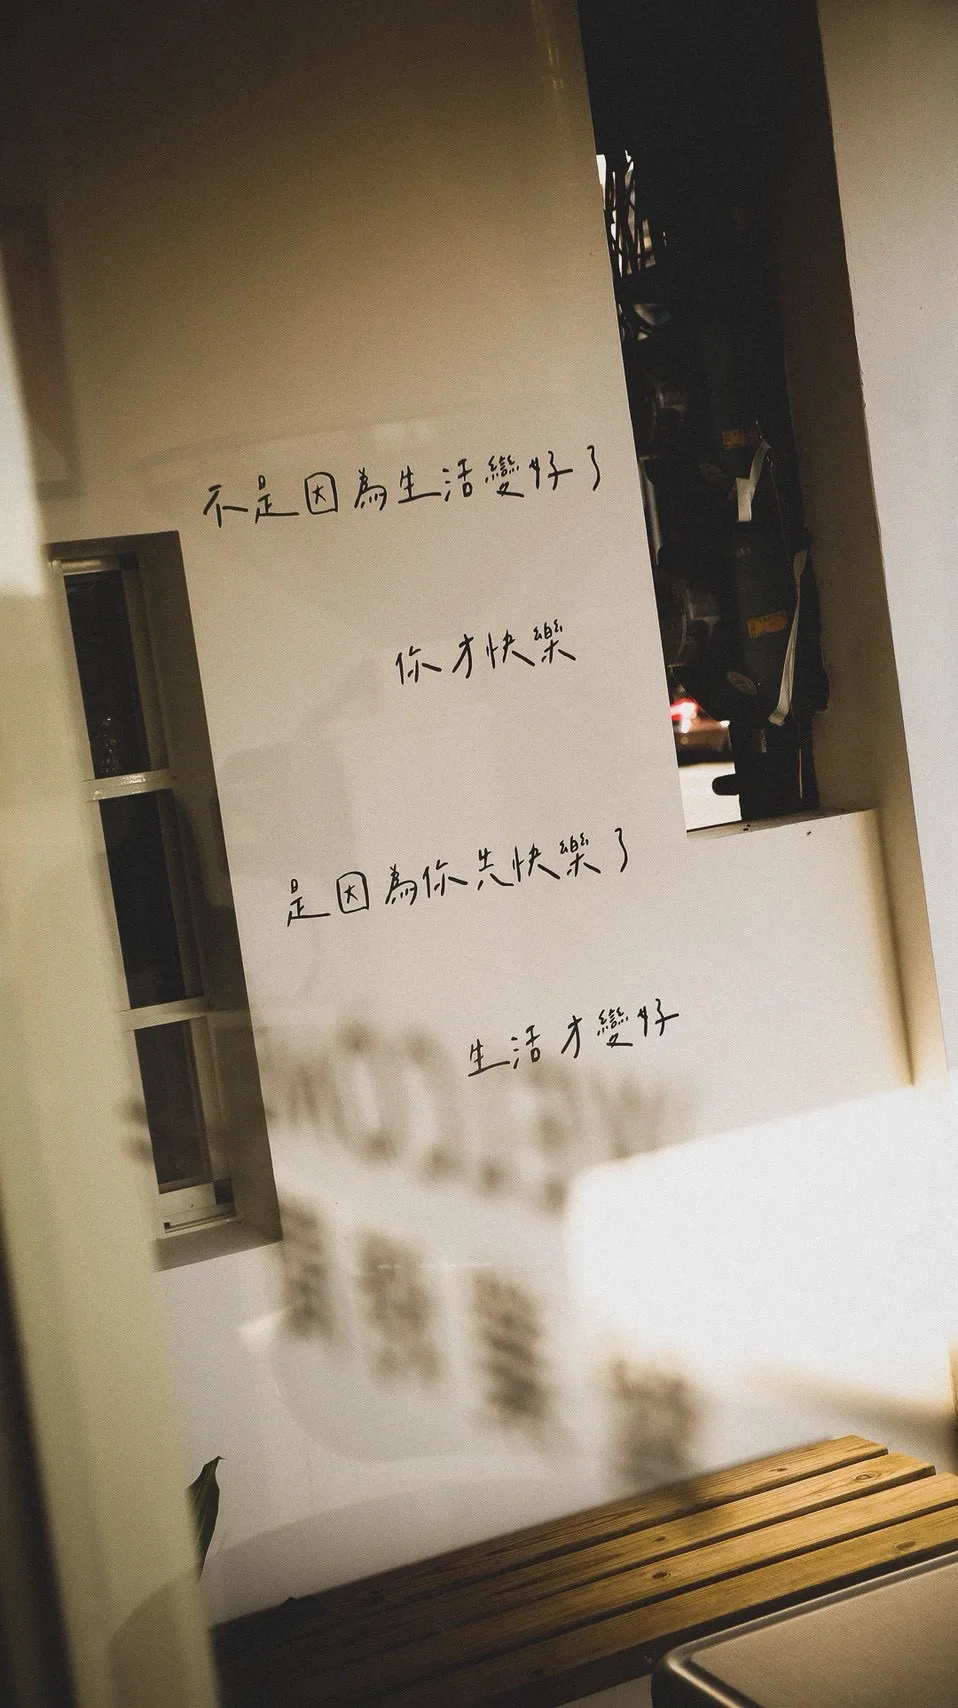 不是因為生活變好了
你才快樂
是因為你先快樂了
生活才變好